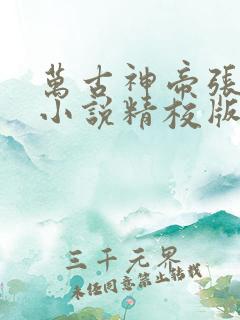 萬古神帝張
小說精校版
三千元界
未经同意禁止转载